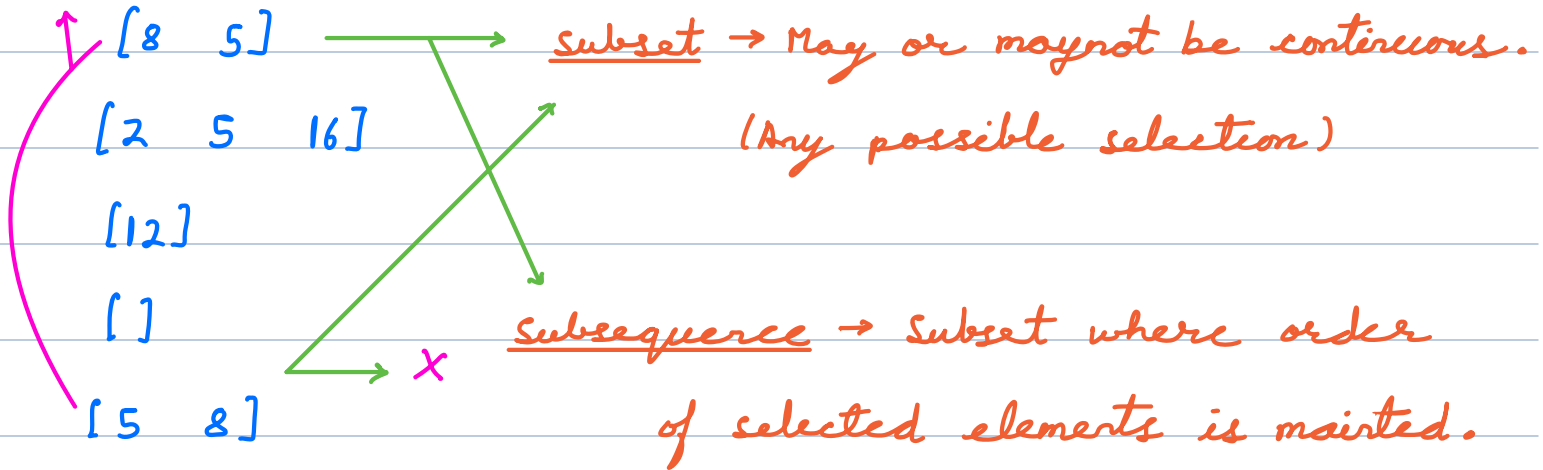 [8 5] → subset → May or maynot be continuous.
[2 5 16] (Any possible selection)
[12]
[ ]
subsequence → Subset where order
→ x
[5 8] of selected elements is mainted.